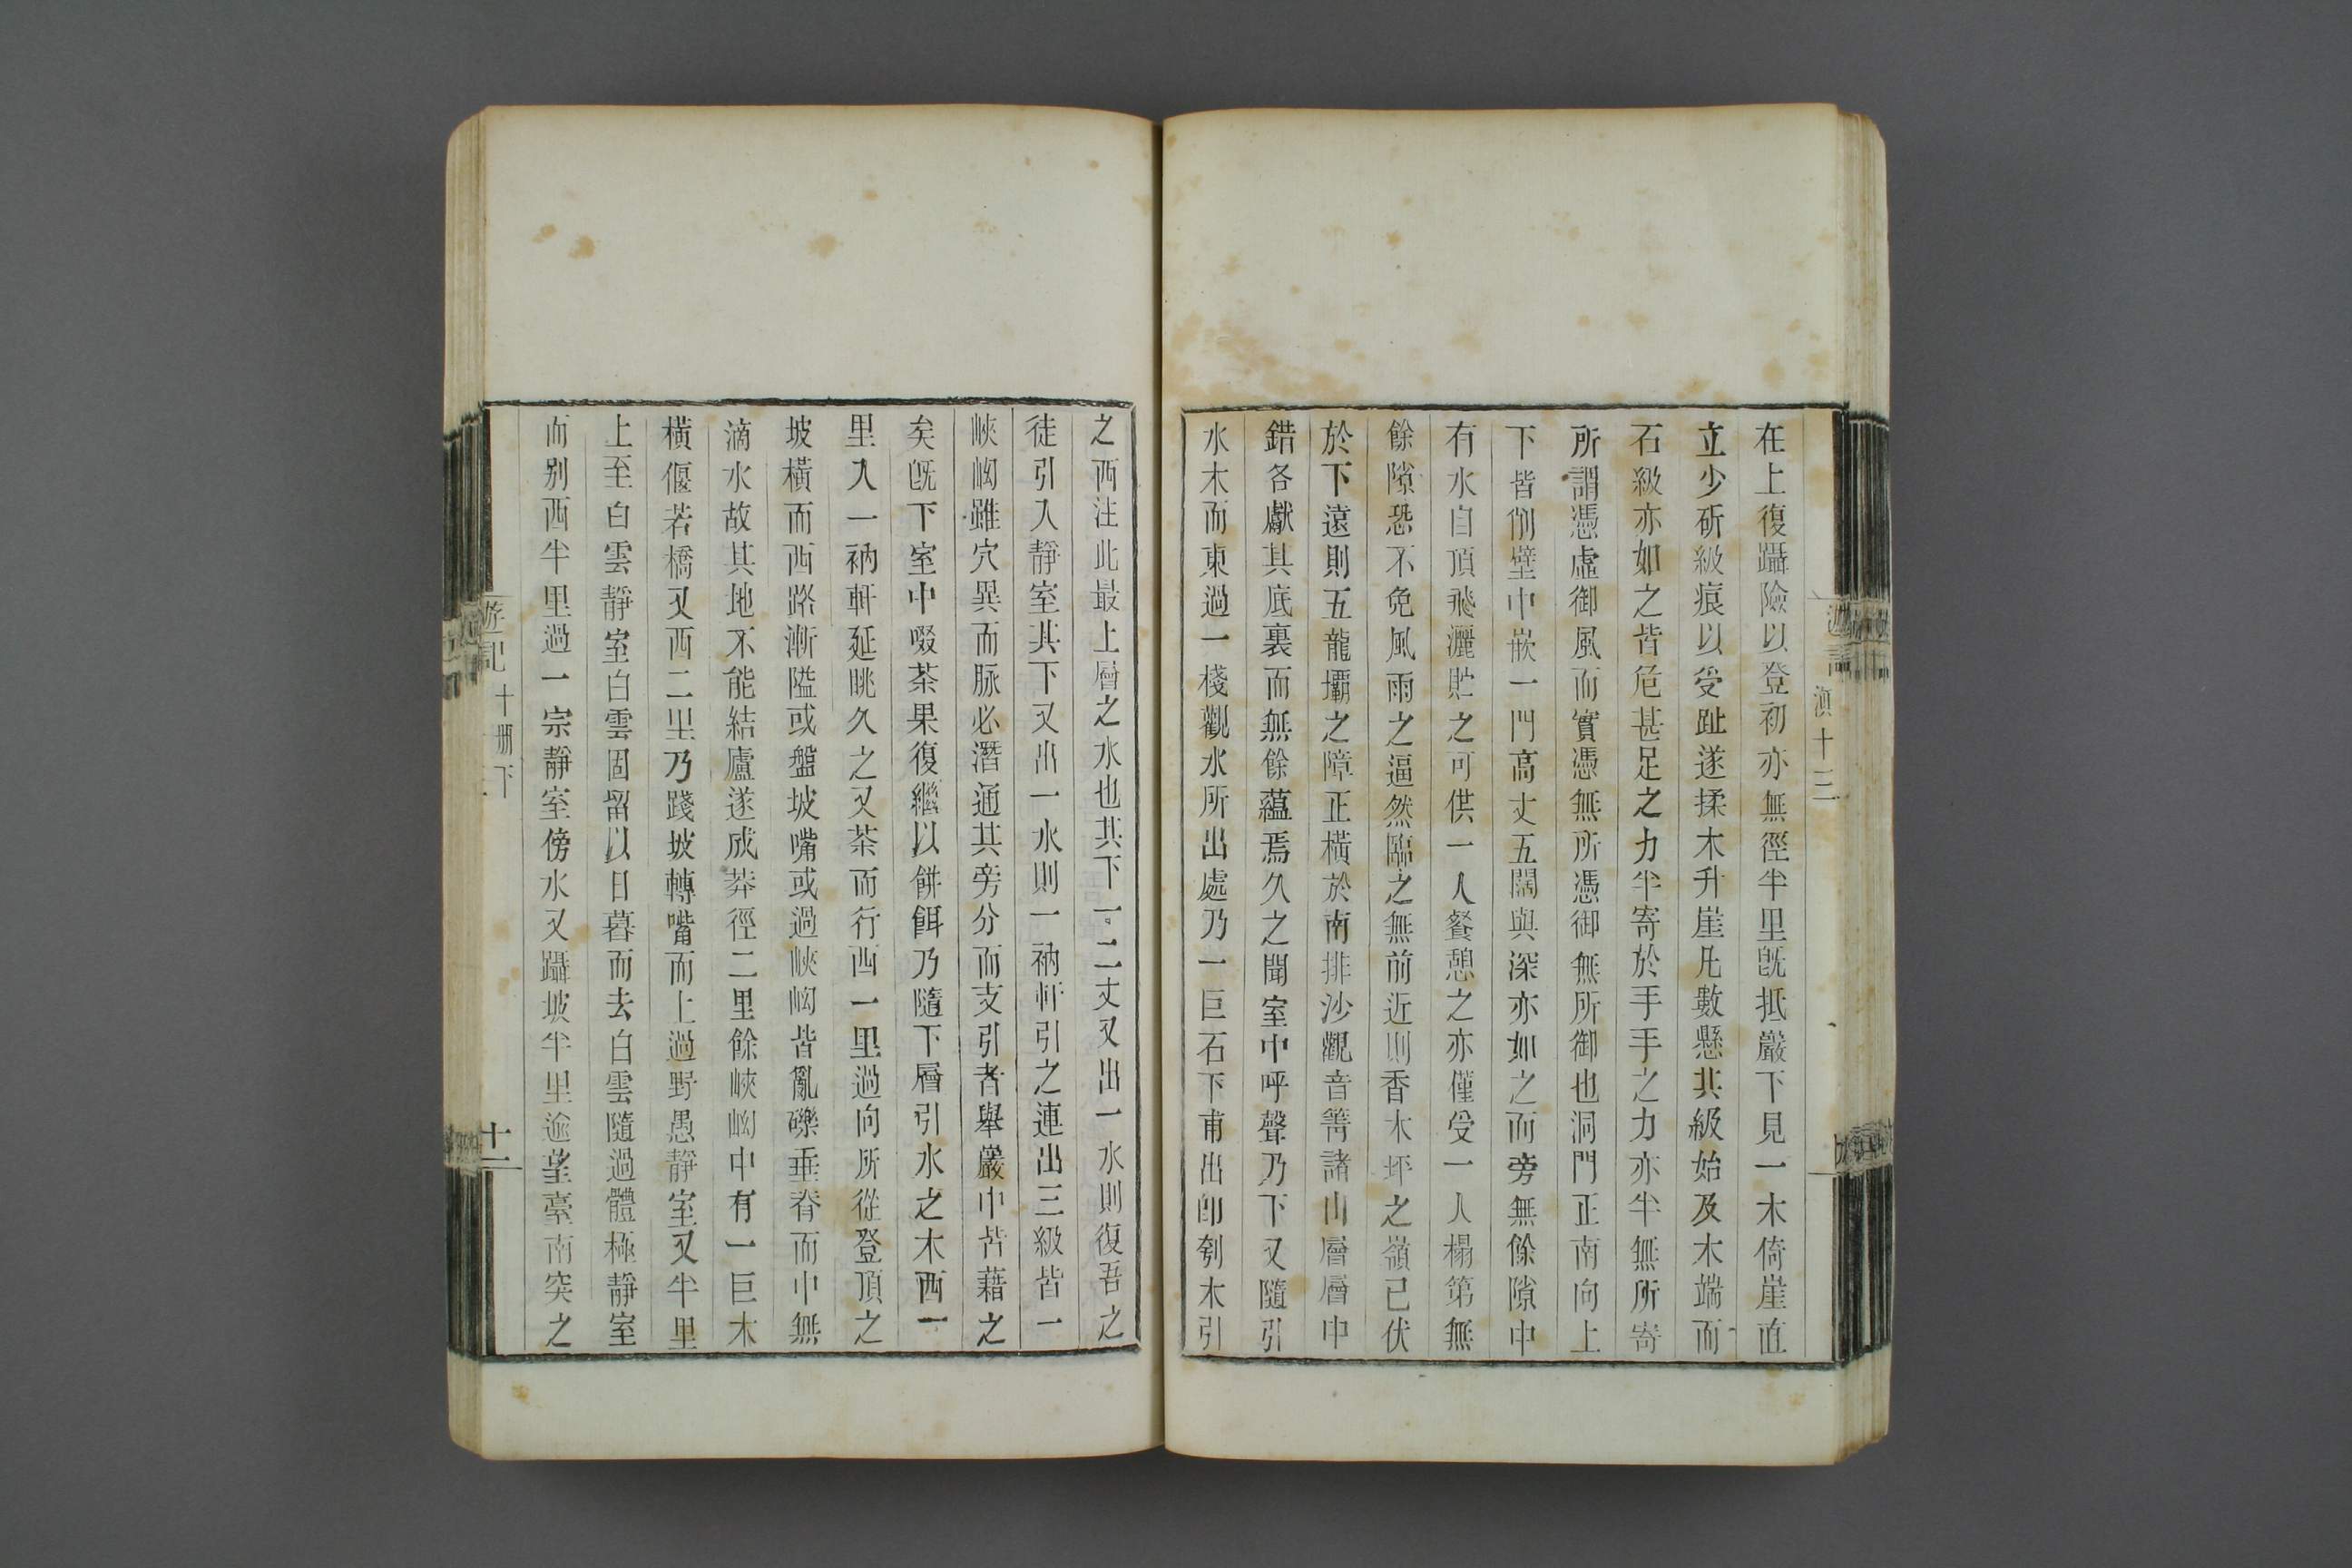 遊記
滇十三
在上復躡險以登初亦無徑半里旣抵巖下見一木倚崖直
立少斫級痕以受趾遂揉木升崖凡數懸其級始及木端而
石級亦如之皆危甚足之力半寄於手手之力亦半無所寄
所謂憑虛御風而實憑無所憑御無所御也洞門正南向上
下皆削壁中嵌一門高丈五闊與深亦如之而旁無餘隙中
有水自頂飛灑貯之可供一人餐憩之亦僅受一人榻第無
餘隙恐不免風雨之逼然臨之無前近則香木坪之嶺已伏
於下遠則五龍壩之障正橫於南排沙觀音箐諸山層層中
錯各獻其底裏而無餘蘊焉久之聞室中呼聲乃下又隨引
水木而東過一棧觀水所出處乃一巨石下甫出卽刳木引
之西注此最上層之水也其下一二丈又出一水則復吾之
徒引入靜室其下又出一水則一衲軒引之連出三級皆一
峽㘭雖穴異而脉必潛通其旁分而支引者舉巖中皆藉之
矣旣下室中啜茶果復繼以餅餌乃隨下層引水之木西一
里入一衲軒延眺久之又茶而行西一里過向所從登頂之
坡橫而西路漸隘或盤坡嘴或過峽㘭皆亂礫垂脊而中無
滴水故其地不能結廬遂成莽徑二里餘峽㘭中有一巨木
橫偃若橋又西二里乃踐坡轉嘴而上過野愚靜室又半里
上至白雲靜室白雲固留以日暮而去白雲隨過體極靜室
而别西半里過一宗靜室傍水又躡坡半里逾望臺南突之
遊記
十册下
十一